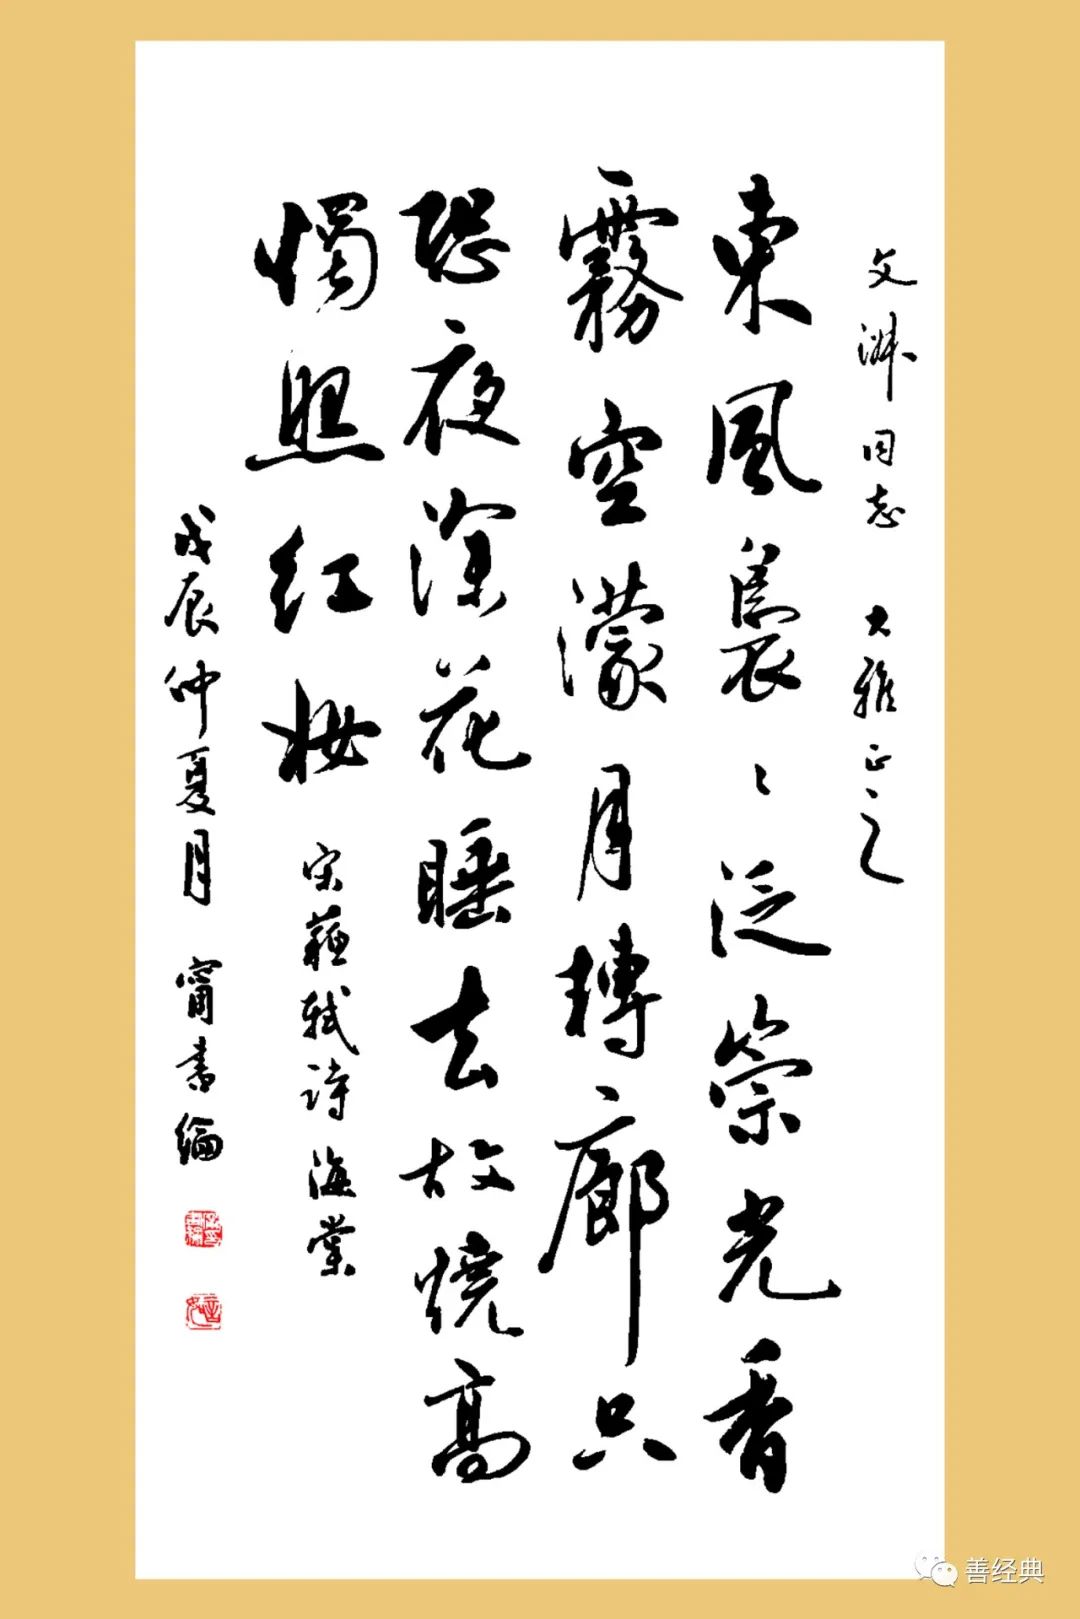 文渊同志 大雅正之
東風裊〻泛崇光香
霧空濛月轉廊只
恐夜深花睡去故燒高
燭照红妝 宋蘇軾诗海棠
戊辰仲夏月 甯書綸
善经典